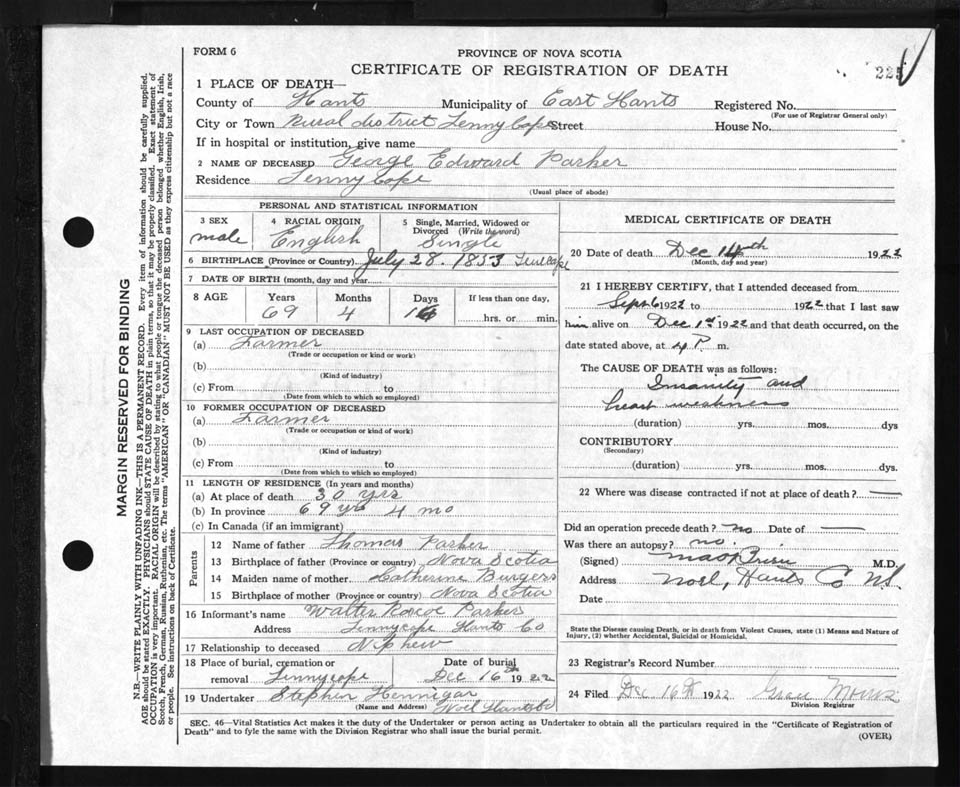 FORM 6
PROVINCE OF NOVA SCOTIA
CERTIFICATE OF REGISTRATION OF DEATH
225
1 PLACE OF DEATH—
County of Hants Municipality of East Hants Registered No.
(For use of Registrar General only)
City or Town Rural district Tennycape Street House No.
If in hospital or institution, give name
2 NAME OF DECEASED George Edward Parker
Residence Tennycape
(Usual place of abode)
PERSONAL AND STATISTICAL INFORMATION
3 SEX male
4 RACIAL ORIGIN English
5 Single, Married, Widowed or Divorced (Write the word) Single
6 BIRTHPLACE (Province or Country) July 28. 1853
7 DATE OF BIRTH (month, day and year)
8 AGE Years Months Days If less than one day,
69 4 16 hrs. or min.
9 LAST OCCUPATION OF DECEASED
(a) Farmer
(Trade or occupation or kind or work)
(b)
(Kind of industry)
(c) From to
(Date from which to which so employed)
10 FORMER OCCUPATION OF DECEASED
(a) Farmer
(Trade or occupation or kind of work)
(b)
(Kind of industry)
(c) From to
(Date from which to which so employed)
11 LENGTH OF RESIDENCE (In years and months)
(a) At place of death 30 yrs
(b) In province 69 yrs 4 mo
(c) In Canada (if an immigrant)
Parents
12 Name of father Thomas Parker
13 Birthplace of father (Province or country) Nova Scotia
14 Maiden name of mother Catherine Burgess
15 Birthplace of mother (Province or country) Nova Scotia
16 Informant's name Walter Roscoe Parker
Address Tennycape Hants Co
17 Relationship to deceased Nephew
18 Place of burial, cremation or removal Tennycape Date of burial Dec 16th 1922
19 Undertaker Stephen Hennigar
(Name and Address) Noel Hants Co
MEDICAL CERTIFICATE OF DEATH
20 Date of death Dec 14th 1922
(Month, day and year)
21 I HEREBY CERTIFY, that I attended deceased from
Sept 6 1922 to 1922 that I last saw
him alive on Dec 1st 1922 and that death occurred, on the
date stated above, at 4 P. m.
The CAUSE OF DEATH was as follows:
Insanity and
heart weakness
(duration) yrs. mos. dys
CONTRIBUTORY
(Secondary)
(duration) yrs. mos. dys.
22 Where was disease contracted if not at place of death? —
Did an operation precede death? no Date of —
Was there an autopsy? no.
(Signed) M.D.
Address Noel, Hants Co N.S.
Date
State the Disease causing Death, or in death from Violent Causes, state (1) Means and Nature of
Injury, (2) whether Accidental, Suicidal or Homicidal.
23 Registrar's Record Number
24 Filed Dec 16th 1922 Grace Morris
Division Registrar
SEC. 46—Vital Statistics Act makes it the duty of the Undertaker or person acting as Undertaker to obtain all the particulars required in the "Certificate of Registration of
Death" and to fyle the same with the Division Registrar who shall issue the burial permit.
(OVER)
MARGIN RESERVED FOR BINDING
N.B.—WRITE PLAINLY WITH UNFADING INK—THIS IS A PERMANENT RECORD. Every item of information should be carefully supplied.
AGE should be stated EXACTLY. PHYSICIANS should STATE CAUSE OF DEATH in plain terms, so that it may be properly classified. Exact statement of
OCCUPATION is very important. RACIAL ORIGIN will be described by stating to what people or tongue the deceased person belonged whether English, Irish,
Scotch, French, German, Russian, Ruthenian, etc. The terms "AMERICAN" OR "CANADIAN" MUST NOT BE USED as they express citizenship but not a race
or people. See instructions on back of Certificate.